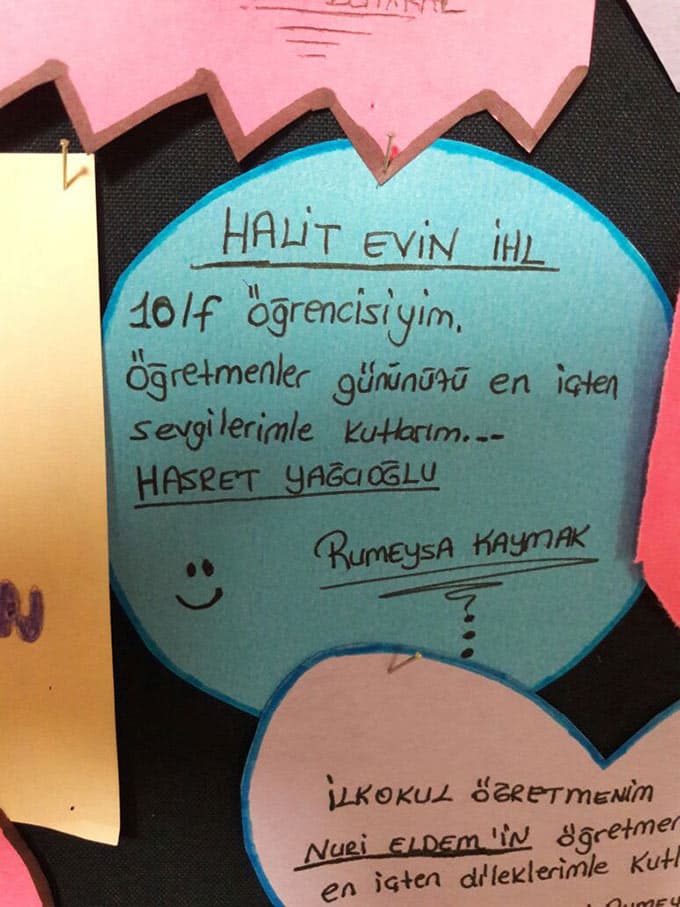 HALİT EVİN İHL
10/f öğrencisiyim.
Öğretmenler gününüzü en içten
sevgilerimle kutlarım...
HASRET YAĞCIOĞLU
RUMEYSA KAYMAK
İLKOKUL ÖĞRETMENİM
NURİ ELDEM'İN öğretmen
en içten dileklerimle kutl